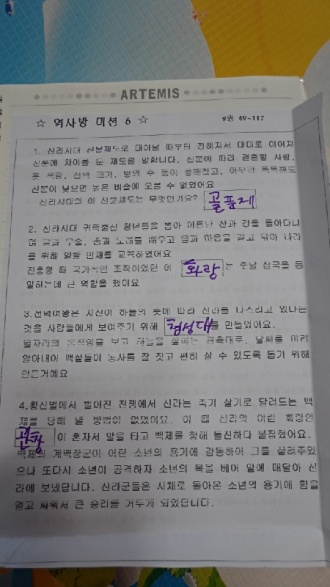 ARTEMIS
☆ 역사방 미션 6 ☆
9권 69~117
1. 신라시대 신분제도로 태어날 때부터 전해져서 대대로 이어져
신분에 차이를 둔 제도를 말합니다. 신분에 따라 결혼할 사람,
옷 색깔, 집의 크기, 방의 수 등이 정해졌고, 아무리 똑똑해도
신분이 낮으면 높은 벼슬에 오를 수 없었어요
신라시대의 이 신분제도는 무엇인가요? 골품제
2. 신라시대 귀족출신 청년들을 뽑아 아름다운 산과 강을 돌아다니
며 무술, 춤과 노래를 배우고 몸과 마음을 갈고 닦아 나라
를 위해 일할 인재를 교육하였어요
진흥왕 때 국가적인 조직이었던 이 화랑 는 훗날 삼국을 통
일하는데 큰 역할을 했어요
3. 선덕여왕은 자신이 하늘의 뜻에 따라 신라를 다스리고 있다는
것을 사람들에게 보여주기 위해 첨성대 를 만들었어요.
별자리의 움직임을 보고 날씨를 미리
알아내어 백성들이 농사를 잘 짓고 편히 살 수 있도록 돕기 위해
만든거예요
4. 황산벌에서 벌어진 전쟁에서 신라는 죽기 살기로 달려드는 백
제를 당해 낼 방법이 없었어요. 이 때 신라의 어린 화랑인
관창 이 혼자서 말을 타고 백제를 향해 돌진하다 붙잡혔어요.
백제의 계백장군이 어린 소년의 용기에 감동하여 그를 살려주었
으나 또다시 소년이 공격하자 소년의 목을 베어 말에 매달아 신
라에 보냈답니다. 신라군들은 시체로 돌아온 소년의 용기에 힘을
얻고 싸워서 큰 승리를 거두게 되었답니다.